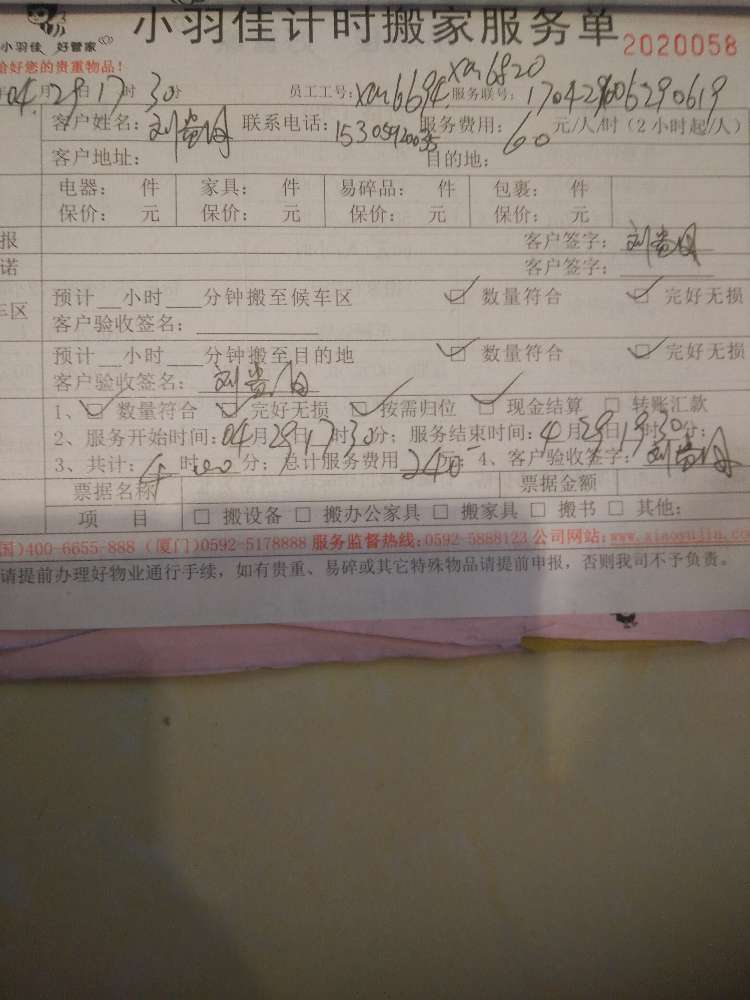 小羽佳计时搬家服务单 2020058
小羽佳 好管家
给好您的贵重物品!
04月29日17时30分 员工工号:xm6694 xm6820 服务联号:
客户姓名: 联系电话: 服务费用:60元/人/时(2小时起/人)
客户地址: 目的地:
电器: 件 家具: 件 易碎品: 件 包裹: 件
保价: 元 保价: 元 保价: 元 保价: 元
报 客户签字:
诺 客户签字:
车区 预计__小时___分钟搬至候车区 □ 数量符合 □ 完好无损
客户验收签名:
预计__小时___分钟搬至目的地 □ 数量符合 □ 完好无损
客户验收签名:
1、□ 数量符合 □ 完好无损 □ 按需归位 □ 现金结算 □ 转账汇款
2、服务开始时间:04月29日17时30分;服务结束时间:4月29日19时30分;
3、共计:4时00分;总计服务费用240元;4、客户验收签字:
票据名称 票据金额
项 目 □ 搬设备 □ 搬办公家具 □ 搬家具 □ 搬书 □ 其他:
国)400-6655-888 (厦门)0592-5178888 服务监督热线:0592-5888123 公司网站:www.xiaoyujia.com
请提前办理好物业通行手续,如有贵重、易碎或其它特殊物品请提前申报,否则我司不予负责。